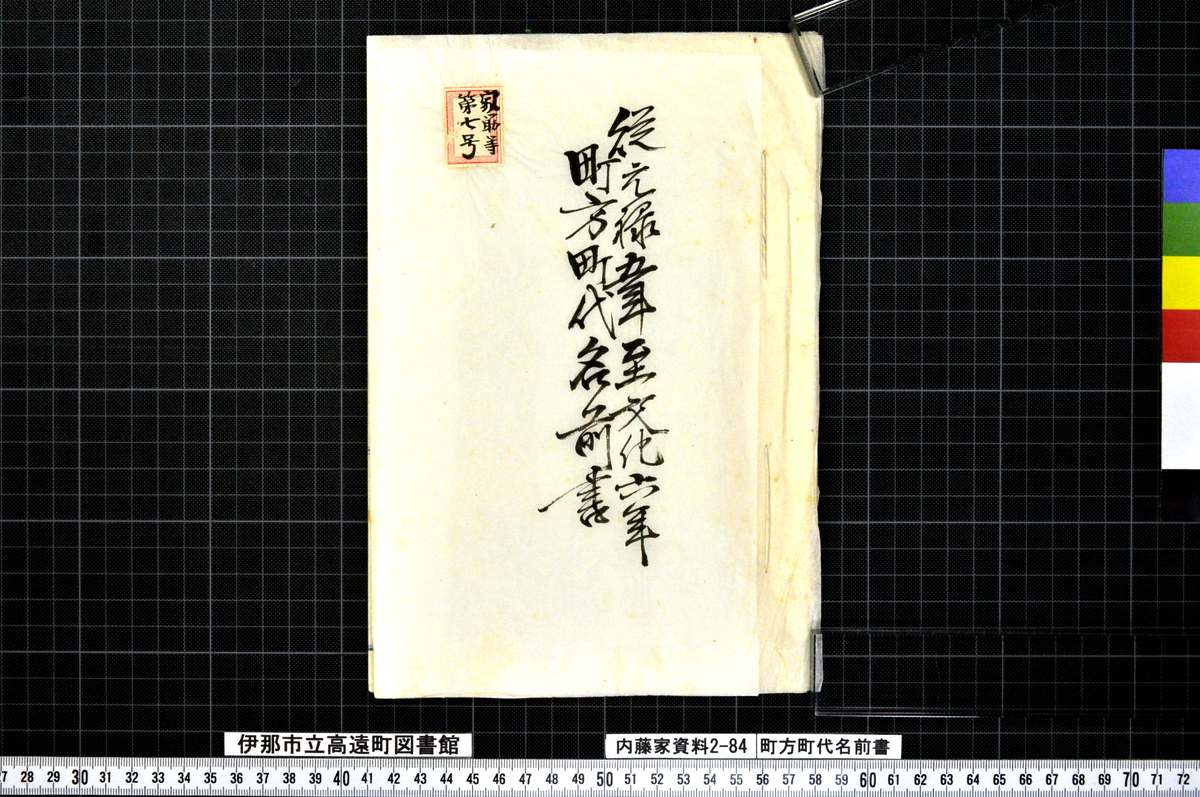 従元禄五年至文化六年
町方町代名前書
第七号
伊那市立高遠町図書館
内藤家資料2-84
町方町代名前書
27 28 29 30 31 32 33 34 35 36 37 38 39 40 41 42 43 44 45 46 47 48 49 50 51 52 53 54 55 56 57 58 59 60 61 62 63 64 65 66 67 68 69 70 71 72